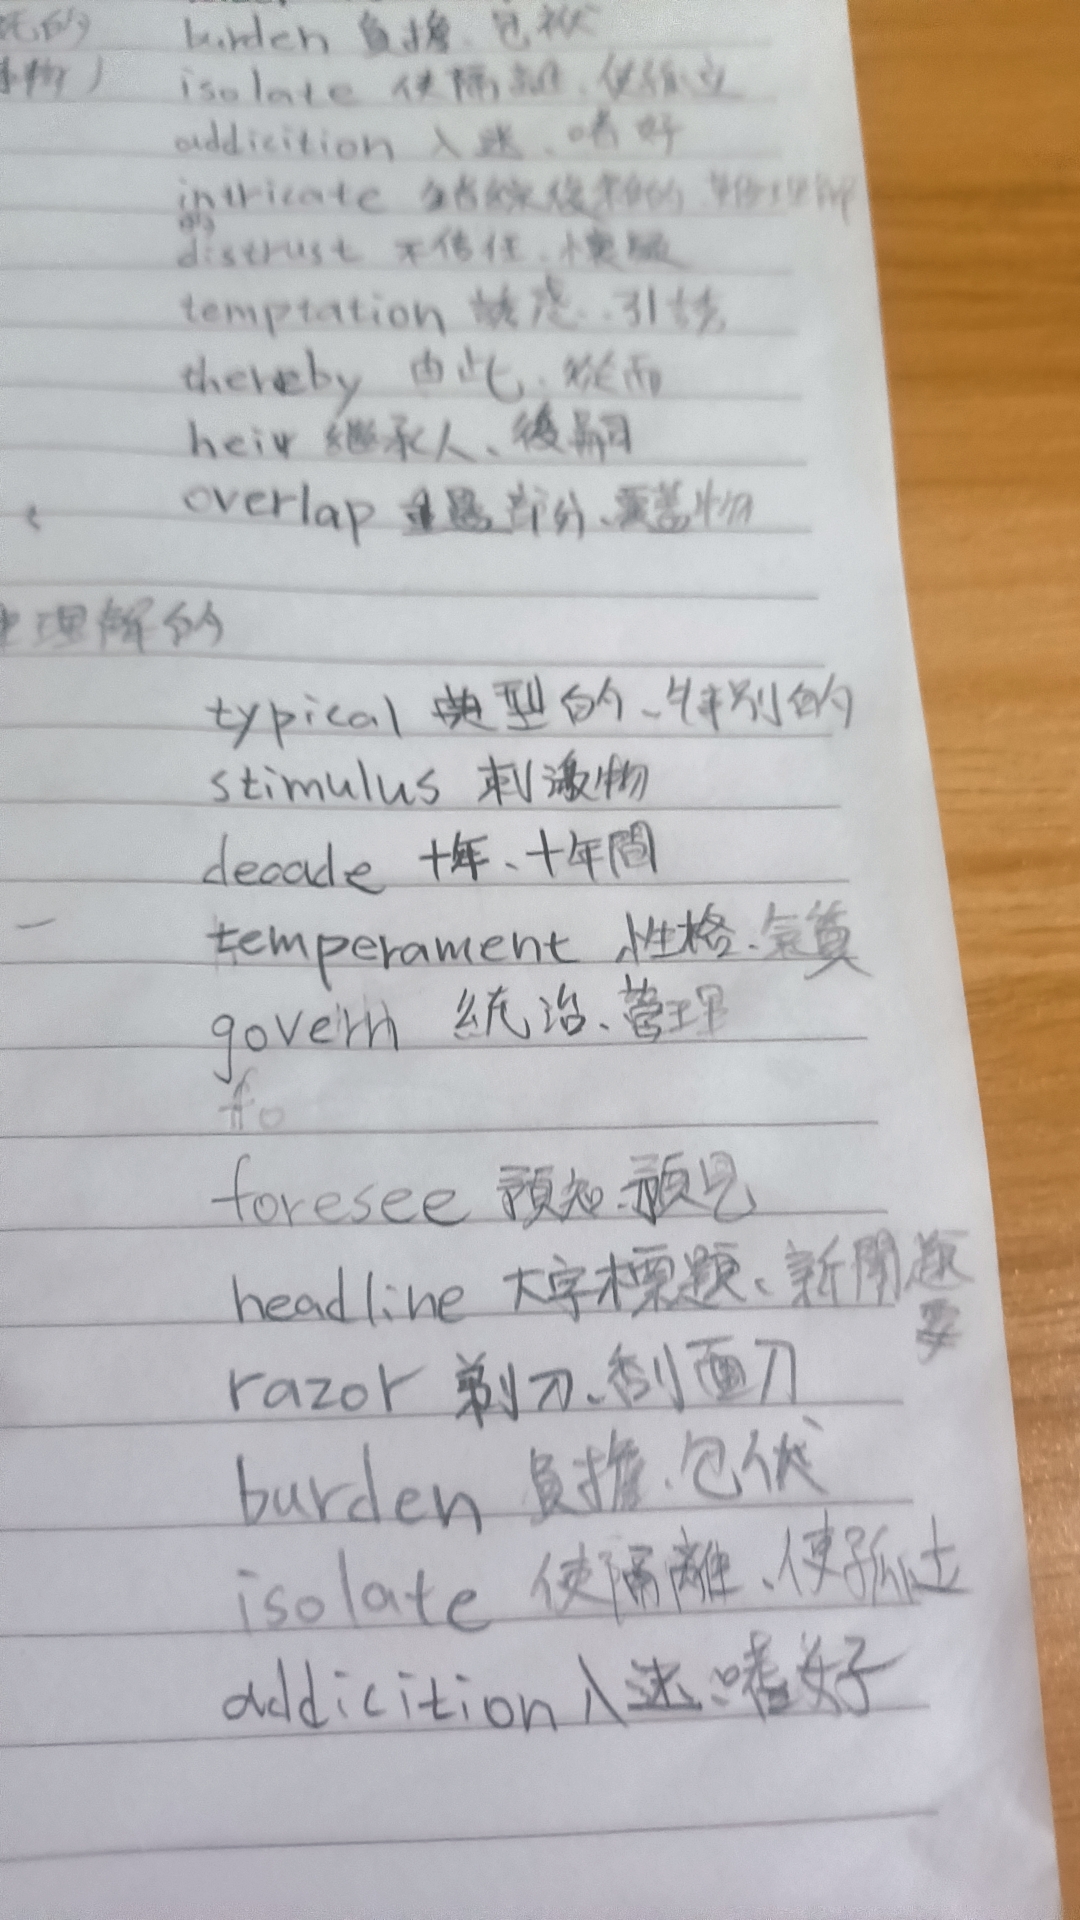 burden 負擔、包袱
isolate 使隔離、使孤立
物)
addicition 入迷、嗜好
intricate 錯綜複雜的
distrust 不信任、懷疑
temptation 誘惑、引誘
thereby 由此、從而
heir 繼承人、後嗣
overlap 重疊部分、覆蓋物
理解的
typical 典型的、特別的
stimulus 刺激物
decade 十年、十年間
temperament 性格、氣質
govern 統治、管理
fo
foresee 預知、預見
headline 大字標題、新聞題
要
razor 剃刀、刮面刀
burden 負擔、包伏
isolate 使隔離、使孤立
addicition 入迷、嗜好